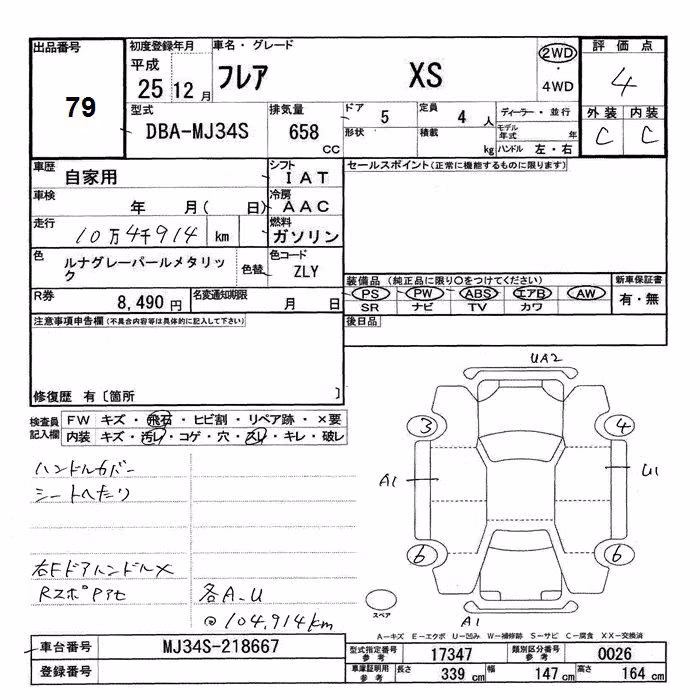 出品番号
79
初度登録年月
平成
25 12 月
車名・グレード
フレア XS
2WD
・
4WD
評価点
4
外装 内装
C C
型式
DBA-MJ34S
排気量
658
CC
ドア
5
形状
定員
4 人
積載
kg
ディーラー・並行
モデル年式 年
ハンドル 左・右
車歴
自家用
シフト
IAT
車検
年 月( 日)
冷房
AAC
走行
10万4千914 km
燃料
ガソリン
色
ルナグレーパールメタリック
色替
色コード
ZLY
R券
8,490 円
名変通知期限
月 日
セールスポイント(正常に機能するものに限ります)
装備品(純正品に限り○をつけてください)
PS PW ABS エアB AW
SR ナビ TV カワ
新車保証書
有・無
後日品
注意事項申告欄(不具合内容等は具体的に記入して下さい)
修復歴 有〔箇所 〕
検査員
記入欄
FW キズ・飛石・ヒビ割・リペア跡・×要
内装 キズ・汚レ・コゲ・穴・スレ・キレ・破レ
ハンドルカバー
シートへたり
右Fドアハンドル×
RスポPアセ
各A-U
@104,914km
UA2
3 4
A1 U1
6 6
A1
スペア
A−キズ E−エクボ U−凹み W−補修跡 S−サビ C−腐食 XX−交換済
車台番号
MJ34S-218667
登録番号
型式指定番号
参考
17347
類別区分番号
参考
0026
車庫証明用
参考
長さ 339 cm 幅 147 cm 高さ 164 cm